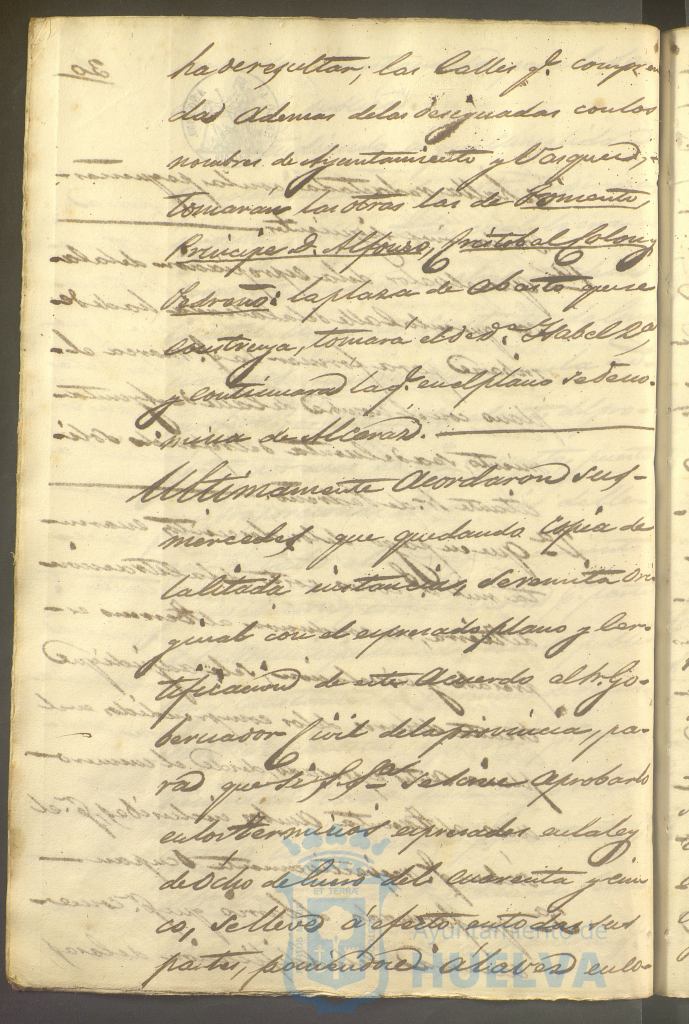 ha de resultar; las Calles q.e compren
das Ademas de las designadas con los
nombres de Ayuntamiento y Vasquez,
tomaran las obras las de Fomento,
Principe D. Alfonso, Cristobal Colon y
la plaza de abasto que se
construya, tomará el de D.a Ysabel 2.a
y continuara la q.e en el plano se deno-
mina de Alcaraz.
Ultimamente Acordaron sus
mercedes que quedando copia de
la citada instancia, se remita ori
ginal con el espresado plano y Cer-
tificacion de este Acuerdo al Sr. Go-
bernador Civil de la provincia, pa-
ra que si S. S.a se sirve aprobarlo
en los terminos espresados en la ley
de Ocho de Enero del cuarenta y cin
co, se lleve á efecto en todas sus
partes, poniendose á la vez en lo-
Ayuntamiento de
HUELVA